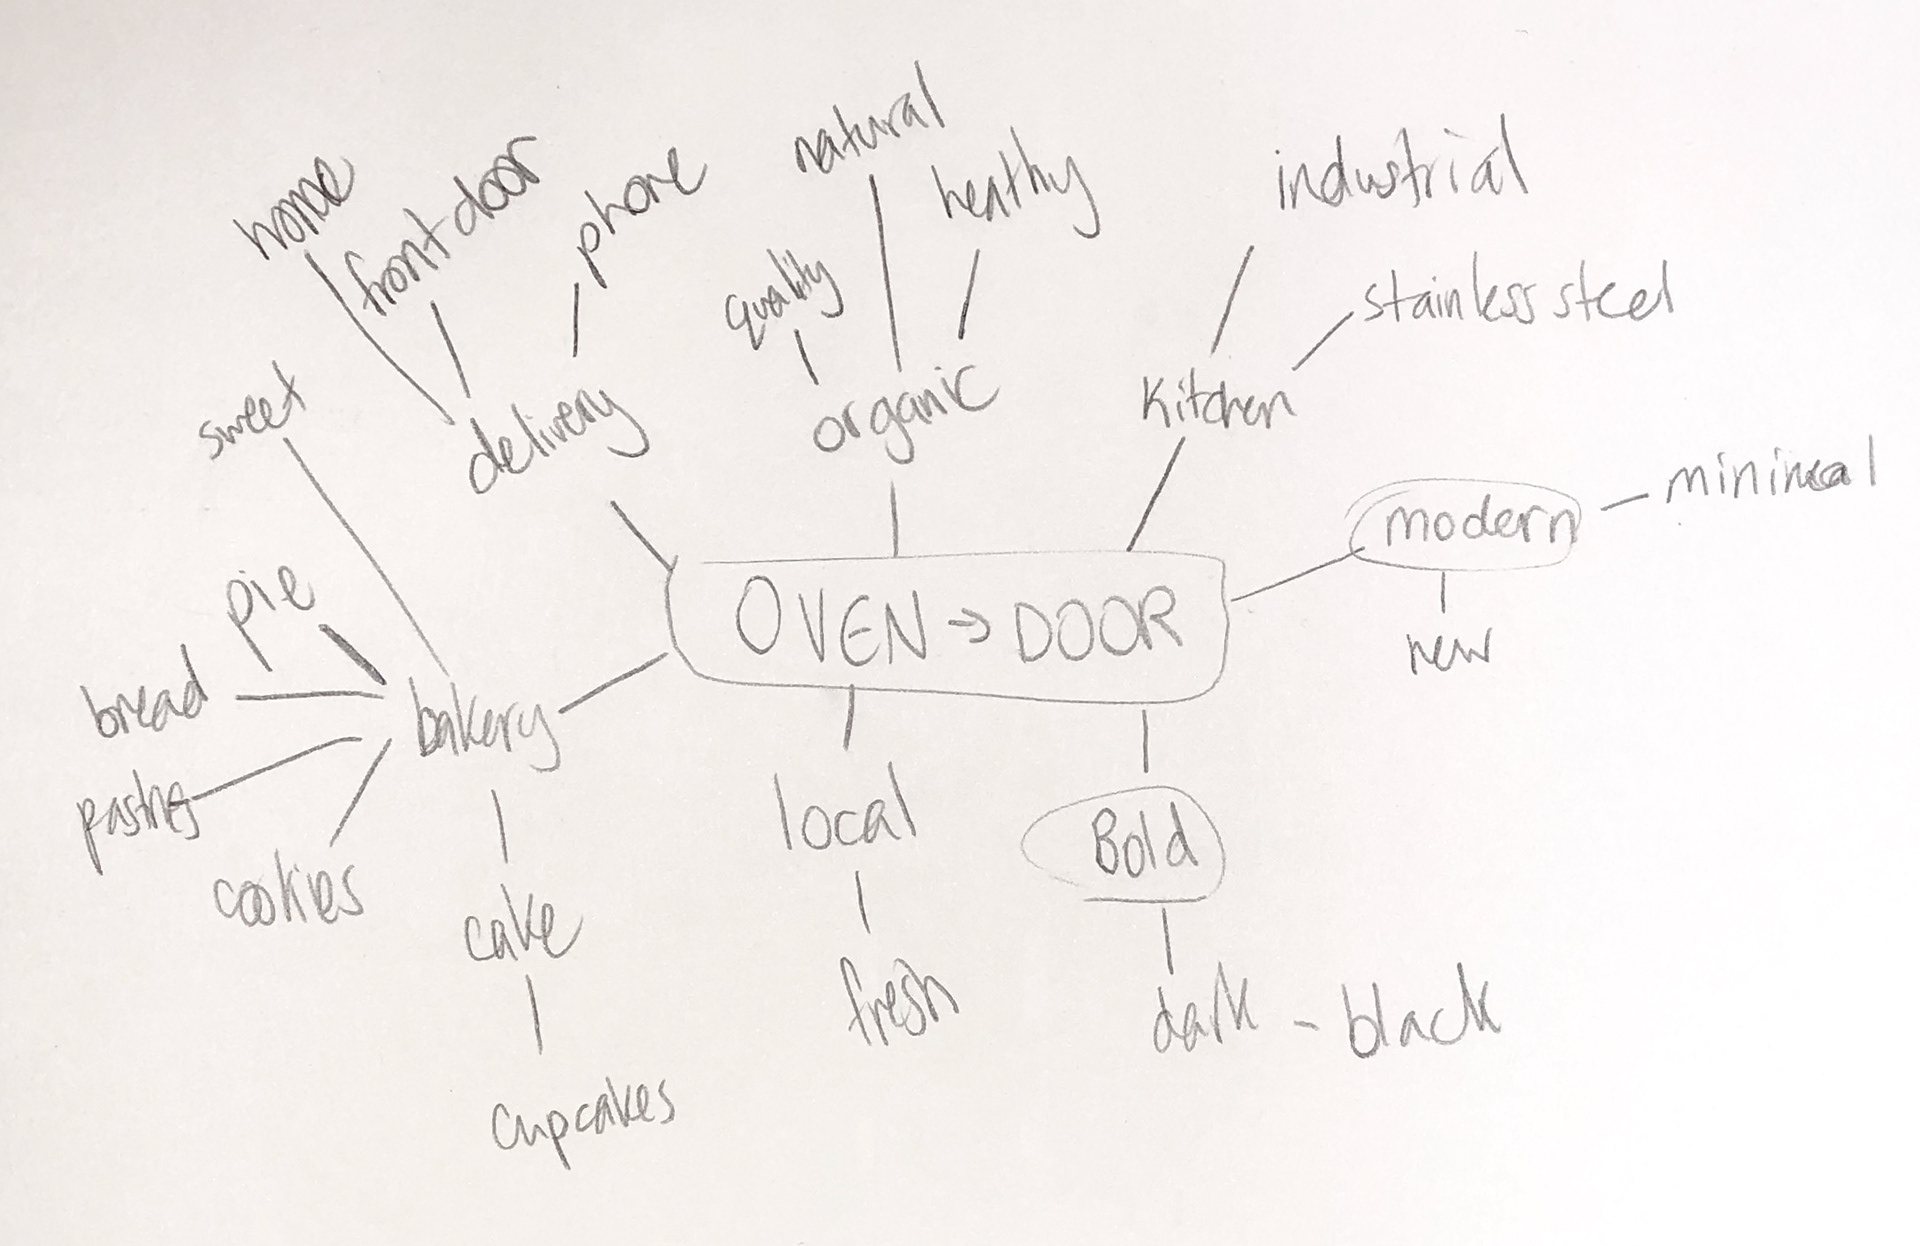 natural
home
front door
phone
heathy
industrial
quality
stainless steel
sweet
delivery
organic
Kitchen
modern
minimal
pie
OVEN → DOOR
new
bread
bakery
local
Bold
cookies
cake
fresh
dark - black
cupcakes